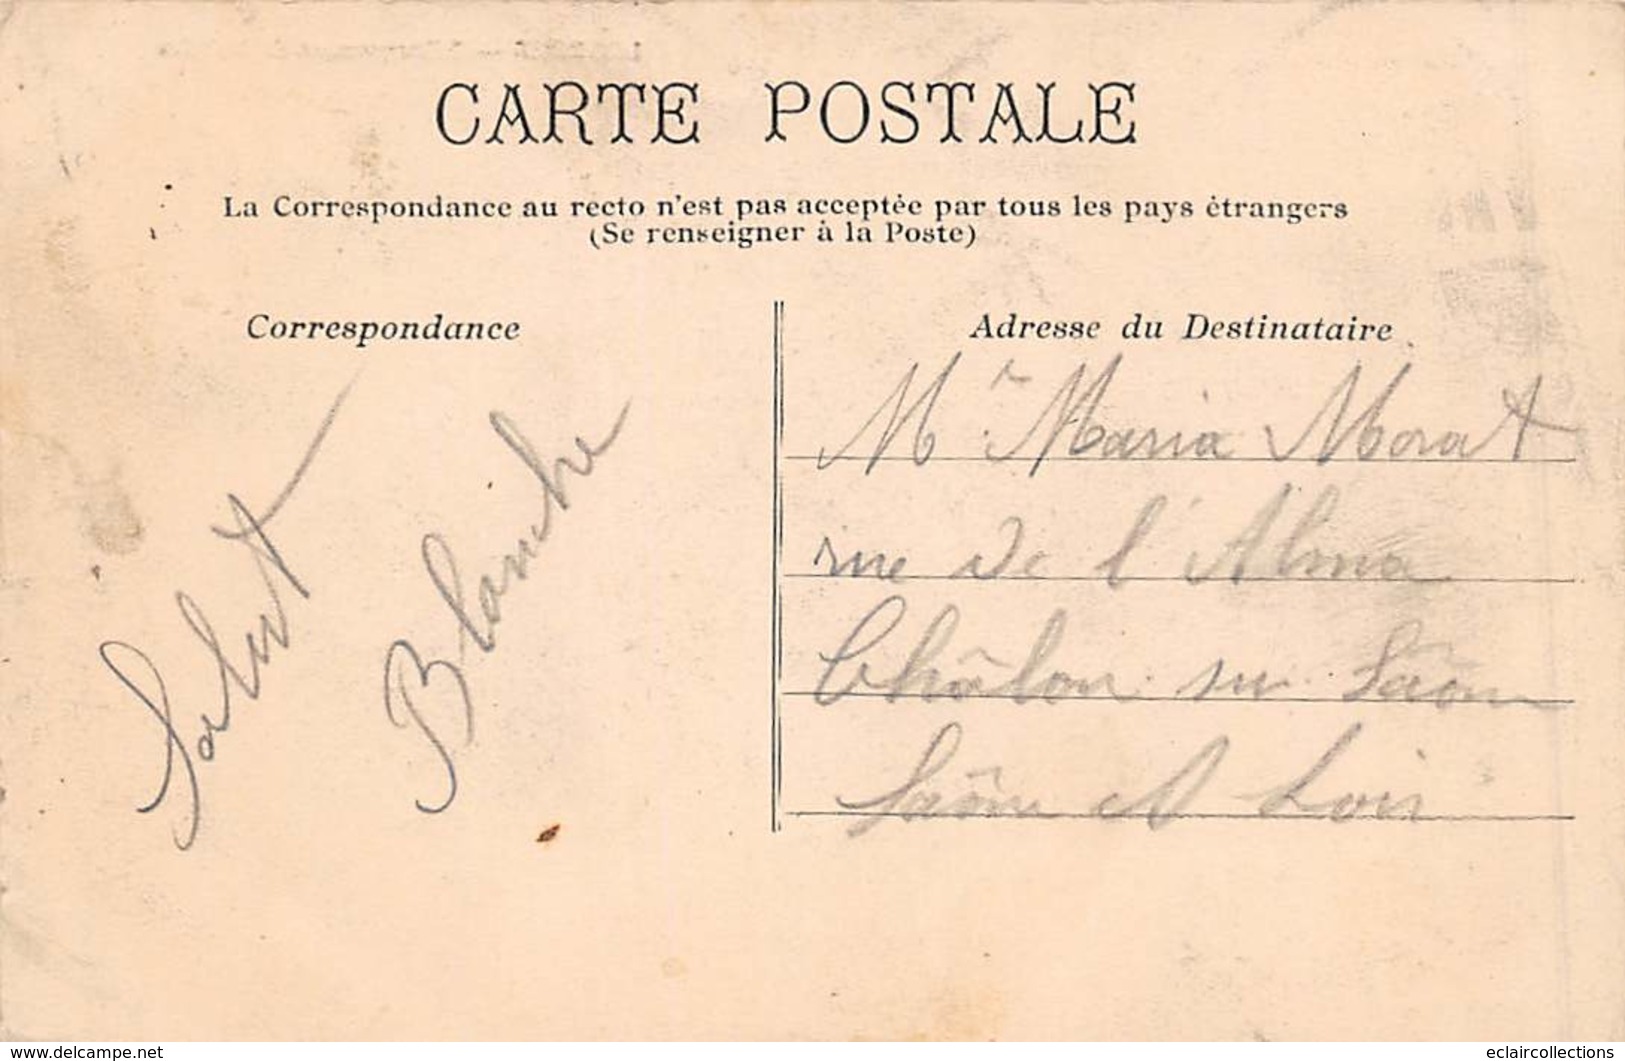 CARTE POSTALE
La Correspondance au recto n'est pas acceptée par tous les pays étrangers
(Se renseigner à la Poste)
Correspondance
Adresse du Destinataire
Salut
Blanche
Mr Maria Morat
rue de l'Alma
Châlon sur Saône
Saône et Loir
www.delcampe.net
eclaircollections